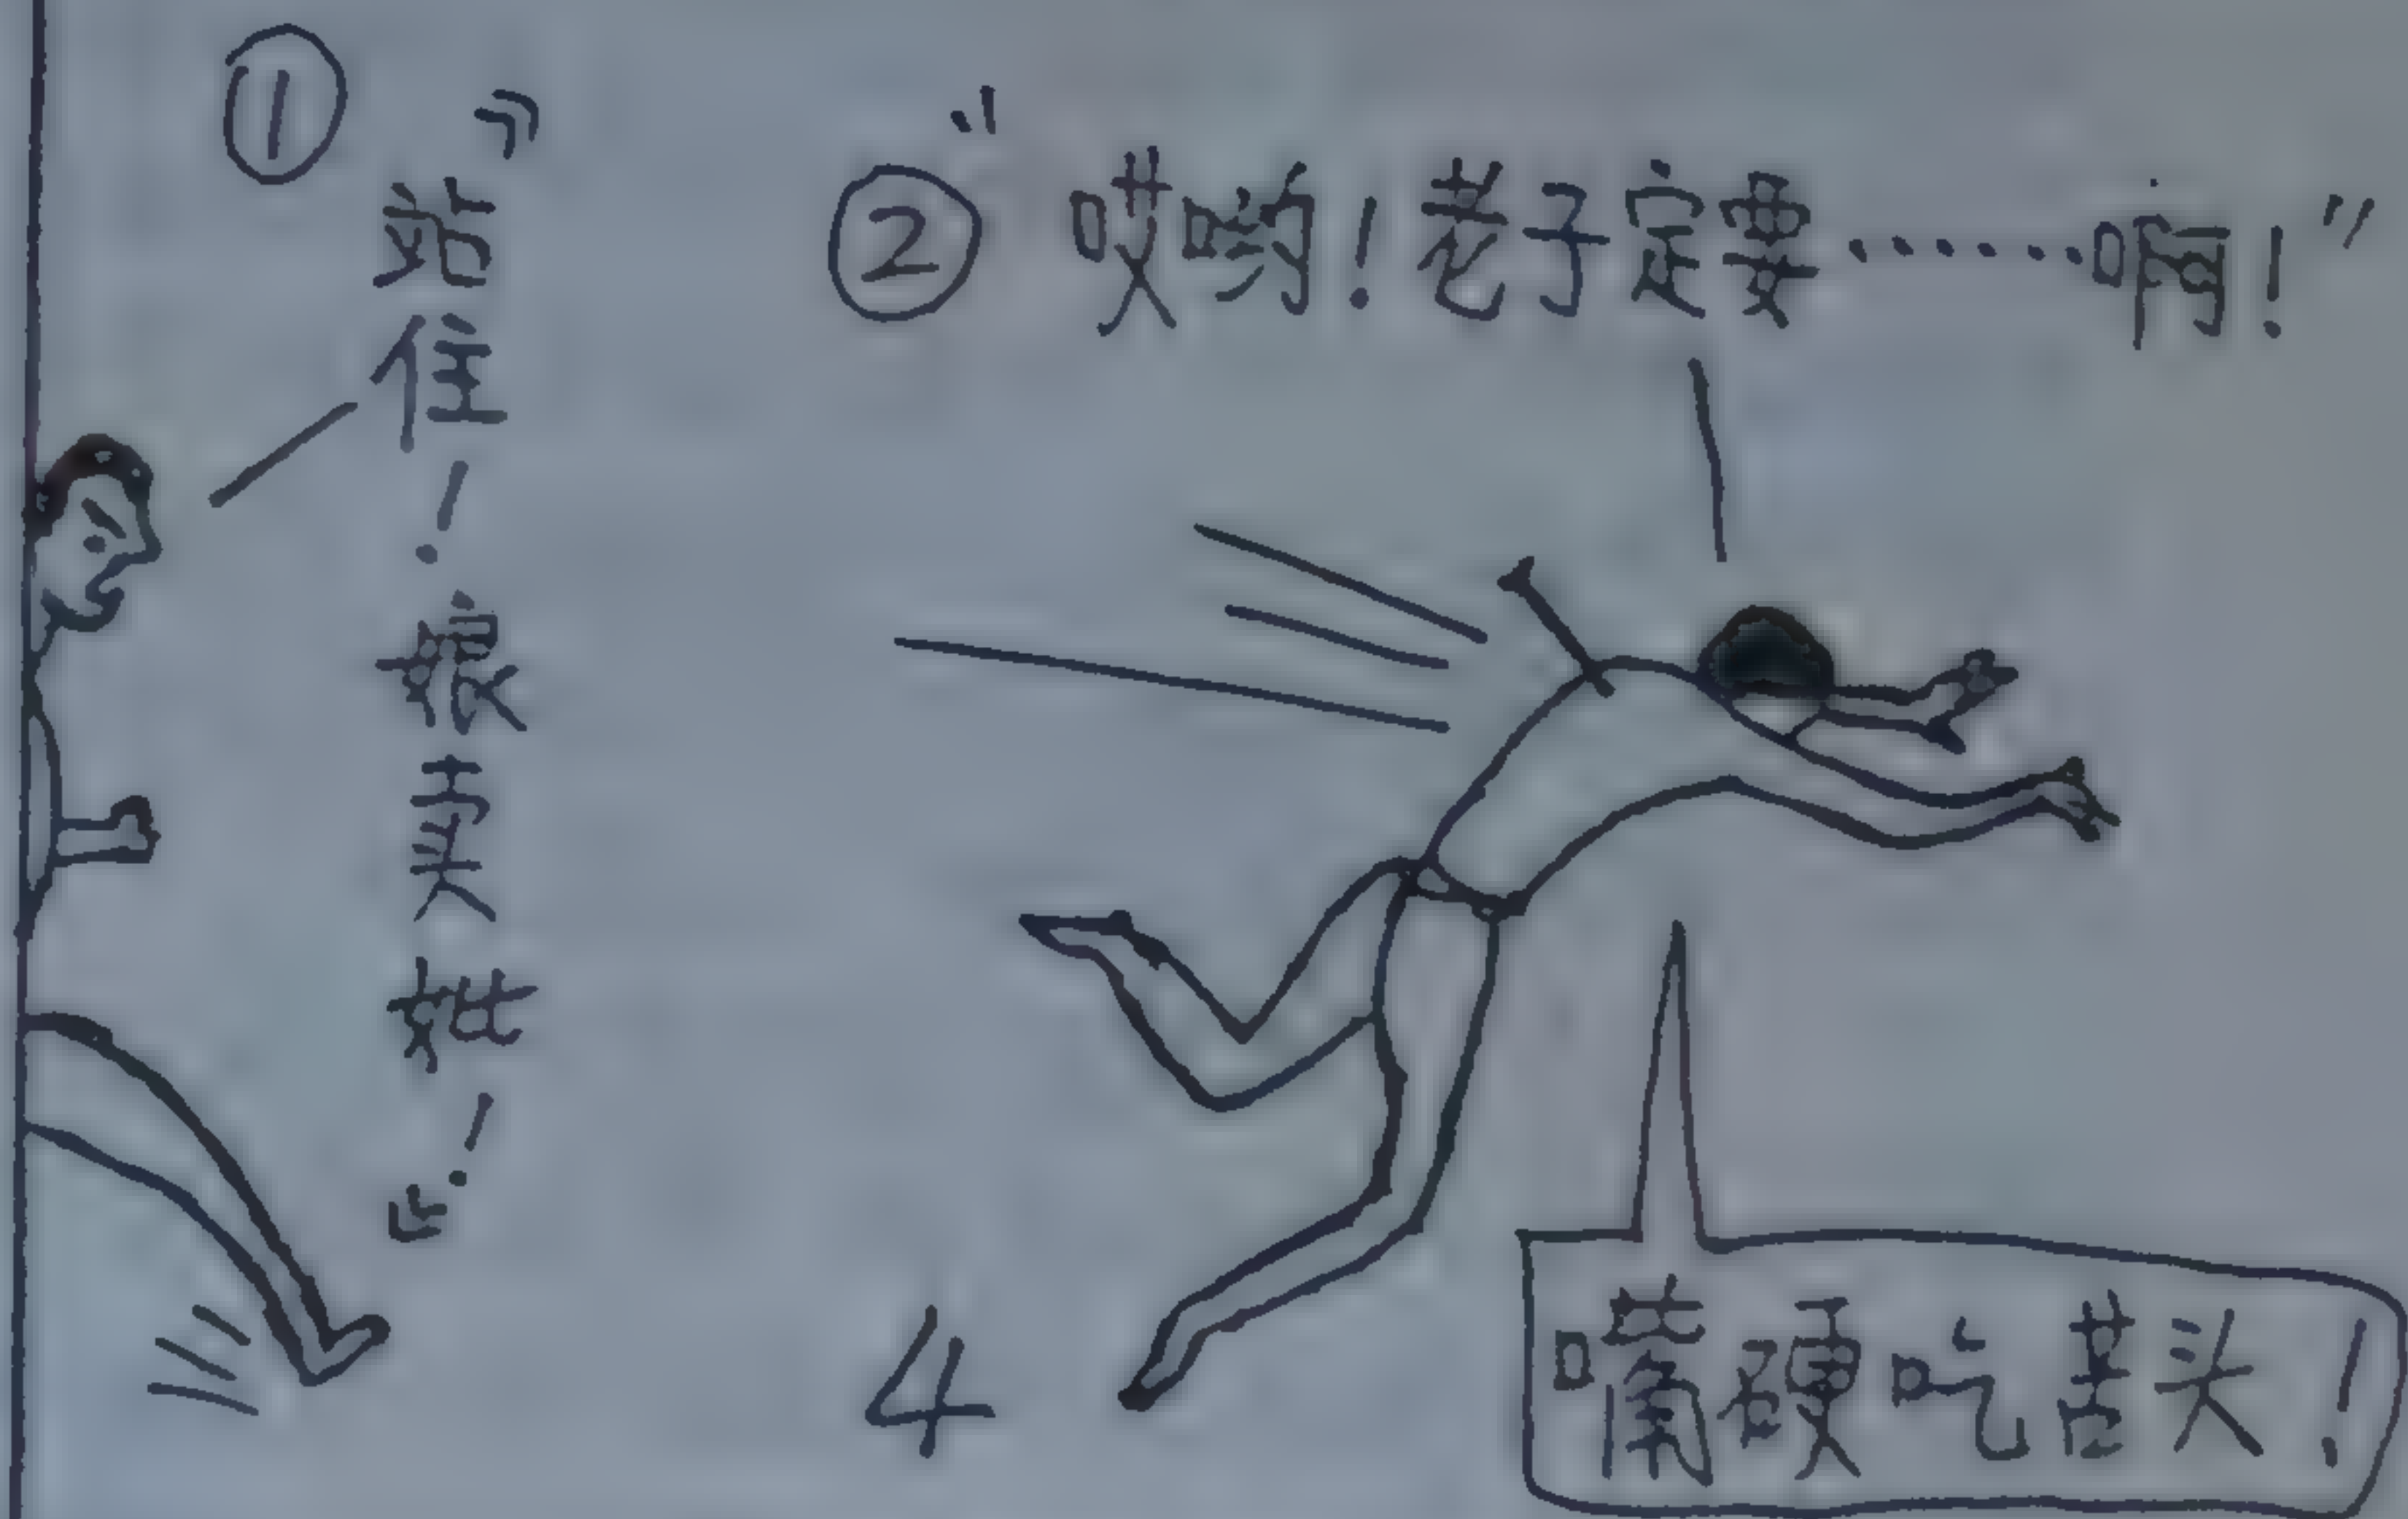 ①
“站住！娘卖妣！”
② “哎哟！老子定要......啊！”
4
嘴硬吃苦头！